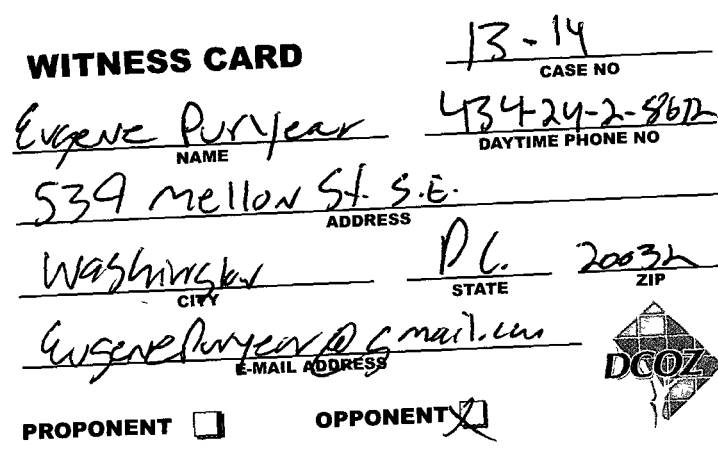 WITNESS CARD
13-14
CASE NO
Eugene Puryear
NAME
434-242-8672
DAYTIME PHONE NO
539 Mellon St. S.E.
ADDRESS
Washington
CITY
D.C.
STATE
20032
ZIP
EugenePuryear@gmail.com
E-MAIL ADDRESS
DCOZ
PROPONENT
OPPONENT X